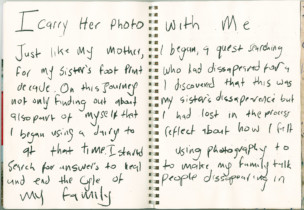 I Carry Her Photo With Me
Just like My Mother, I began, a quest searching
for My Sister's foot Print who had dissapeared for a
decade. On this Journey I discovered that this was
not only finding out about my sister's dissaperence but
also part of myself that I had lost in the process
I began using a dairy to reflect about how I felt
at that time. I started using photography to
Search for answers to heal to make my family talk
and end the cycle of people dissapearing in
my family